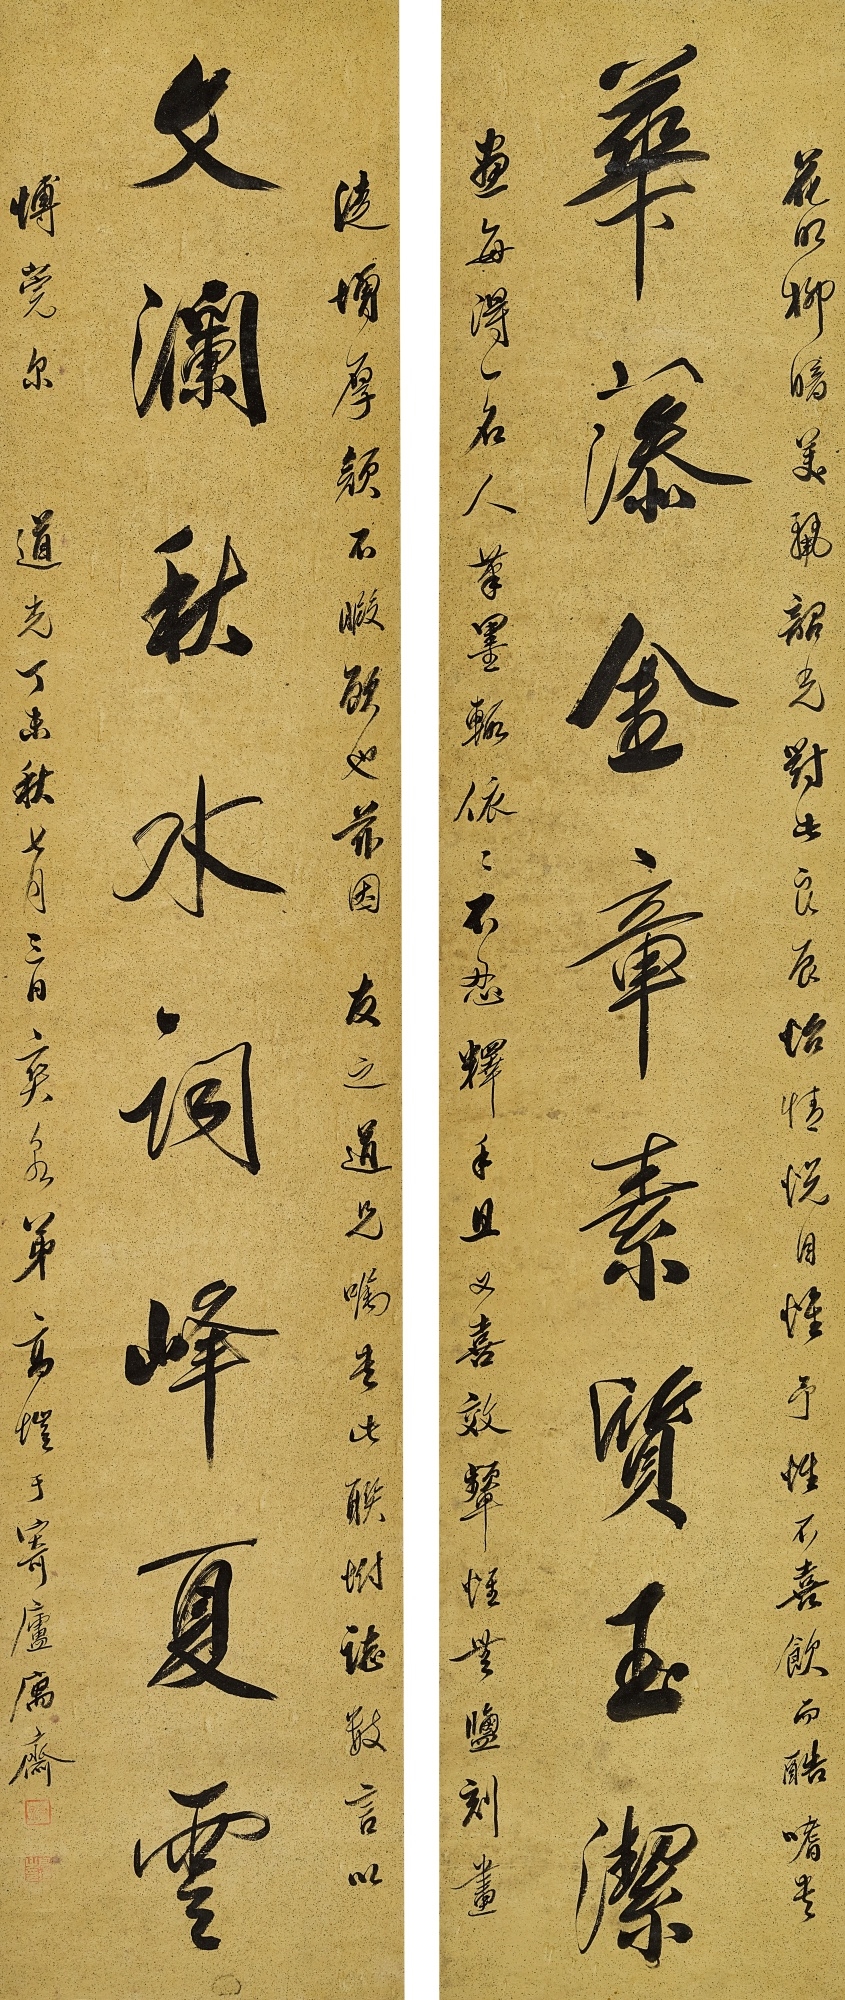 花明柳暗美麗韶光對此良辰怡情悅目惟予性不喜飲而酷嗜書
華藻金章素質玉潔
畫每得一名人筆墨輒依々不忍釋手且又喜效顰惟無鹽刻畫
徒增厚顏不暇顧也茲因 友之道兄囑書此聯附誌數言以
文瀾秋水詞峰夏雲
博莞尔 道光丁未秋七月三日奕泉弟高塏于寄廬寓齋